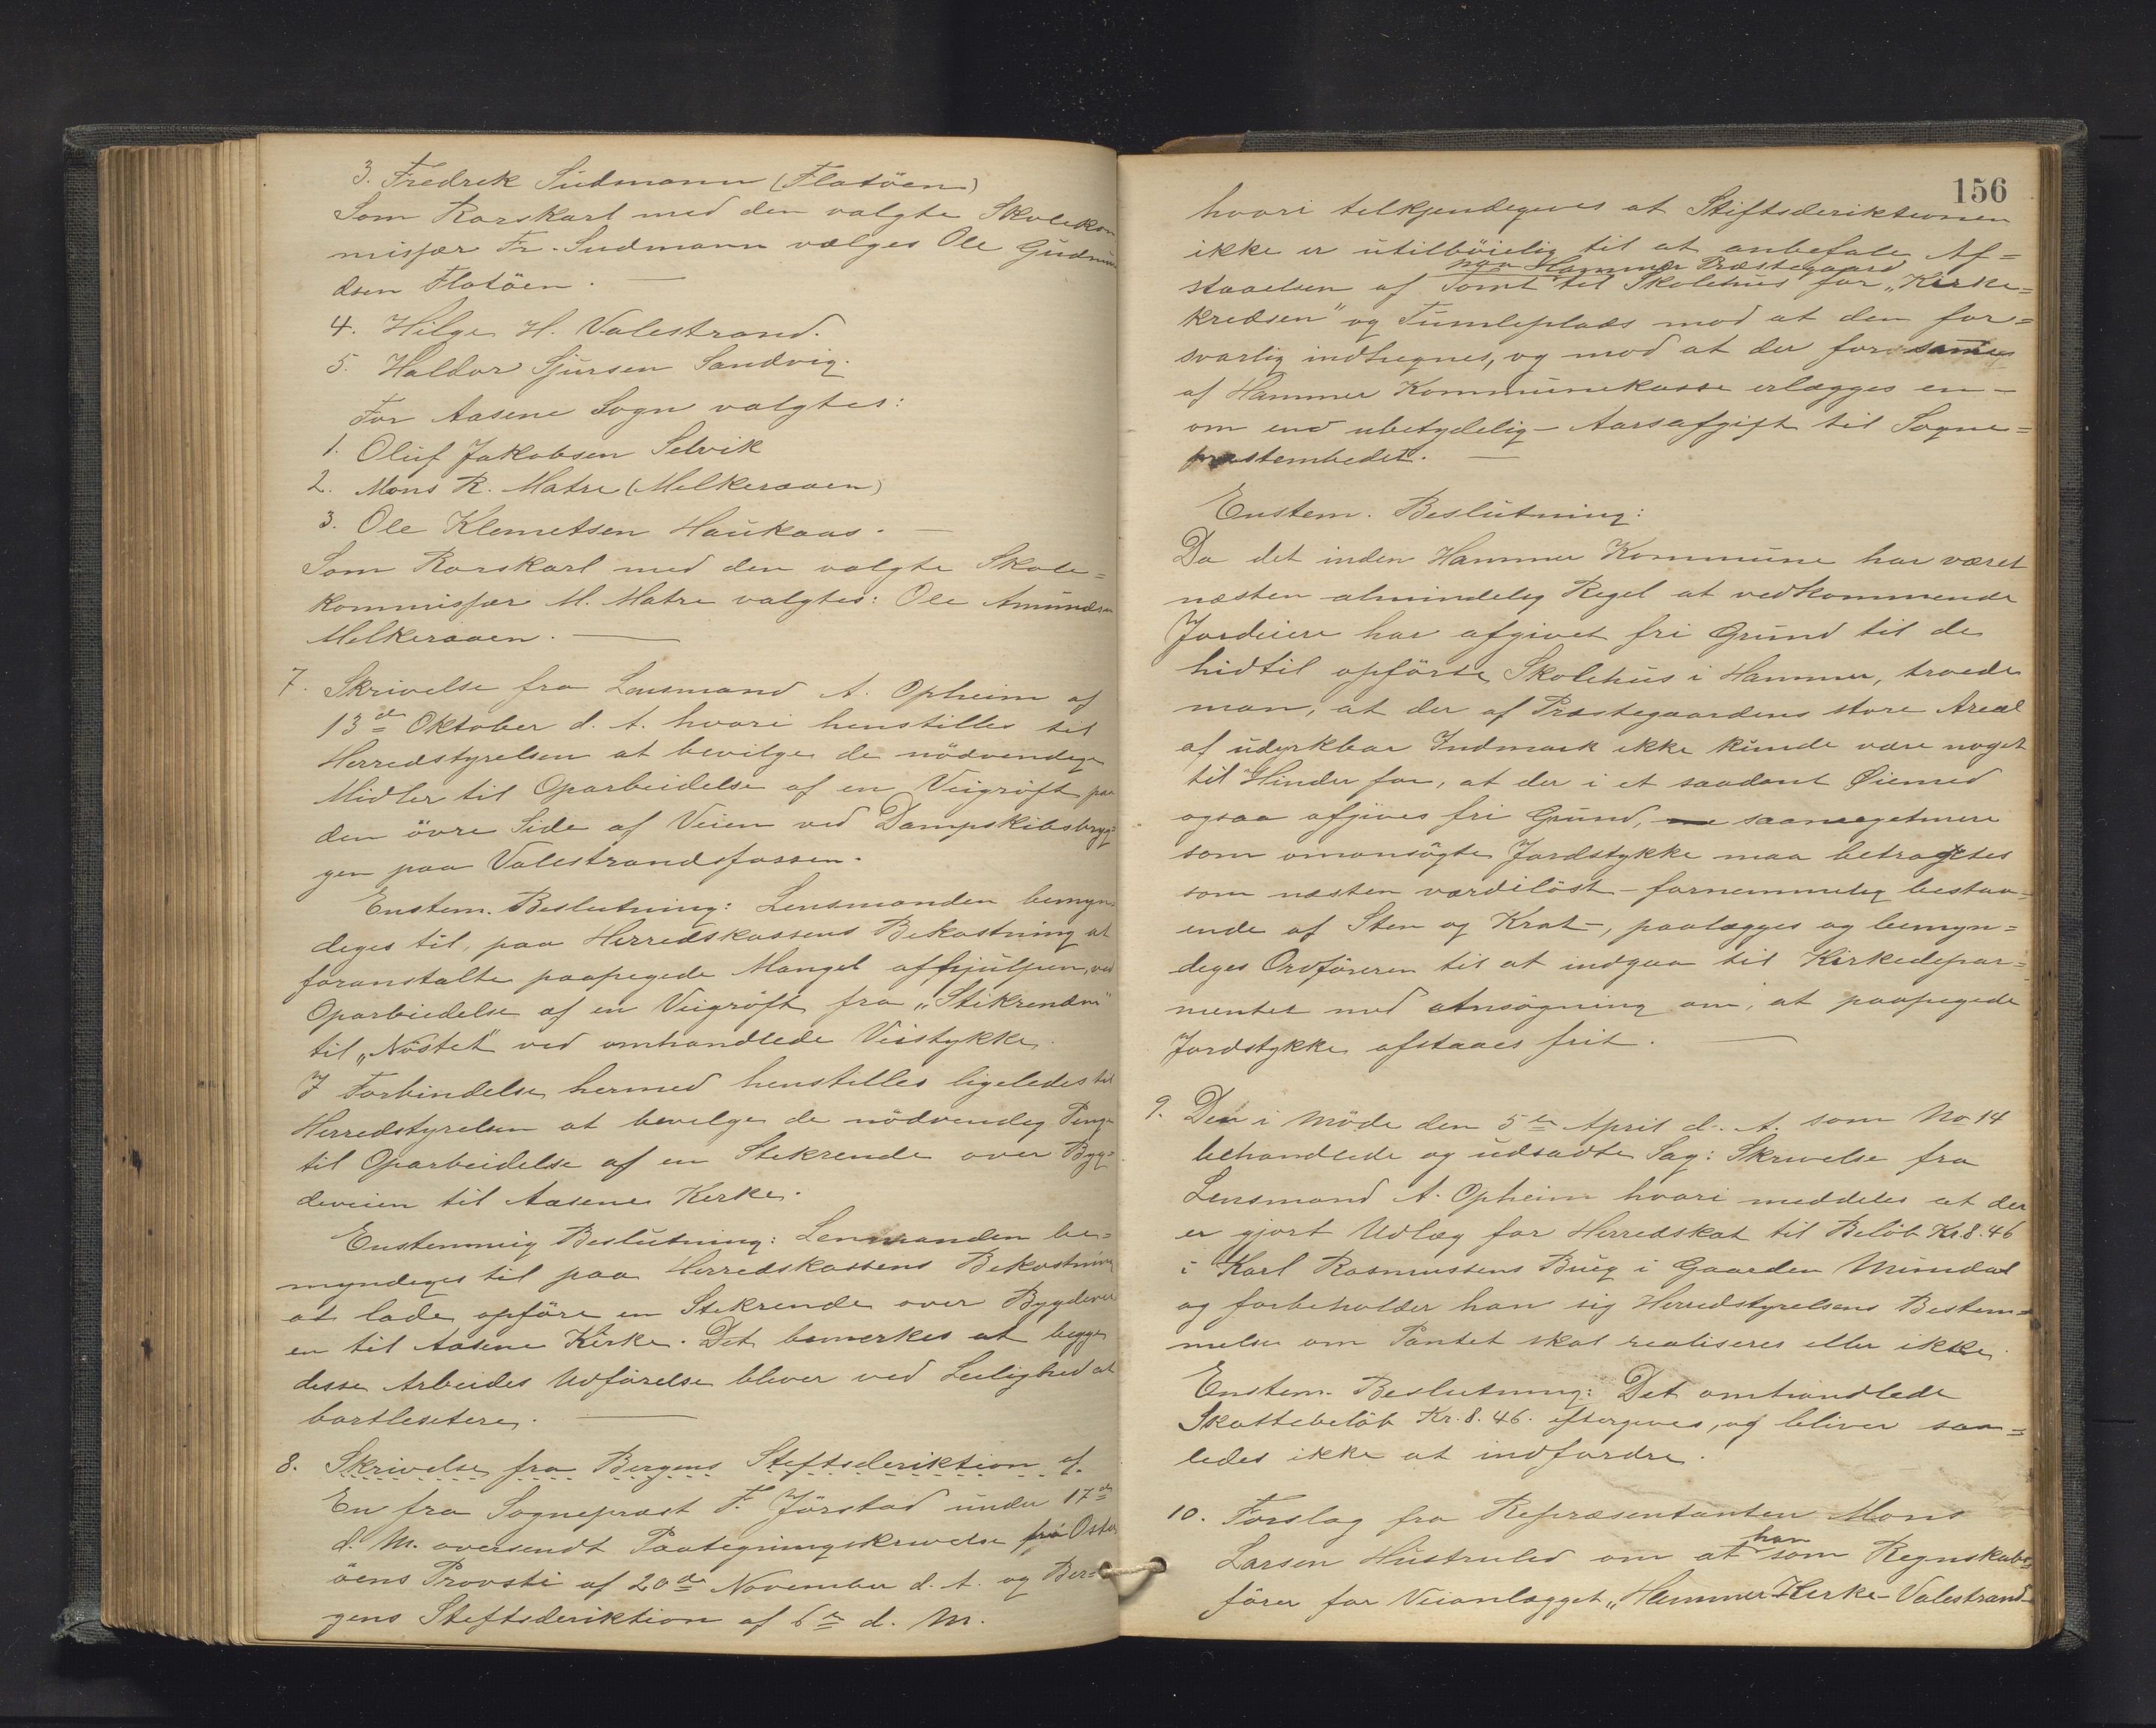 3. Fredrek Sudmann (Flatöen)
Som Rorskarl med den valgte Skolekom
missær Fr. Sudmann vælges Ole Gudmun
dsen Flatöen. —
4. Hilge H. Valestrand.
5. Haldor Sjursen Sandvig.
For Aasene Sogn valgtes:
1. Oluf Jakobsen Selvik
2. Mons R. Matre (Melkeraaen)
3. Ole Klemetsen Haukaas. —
Som Rorskarl med den valgte Skole=
kommissær M. Matre valgtes: Ole Amundsen
Melkeraaen. —
7. Skrivelse fra Lensmand A. Opheim af
13de Oktober d. A. hvori henstilles til
Herredstyrelsen at bevilge de nödvendige
Midler til Oparbeidelse af en Veigröft paa
den övre Side af Veien ved Dampskibsbryg=
gen paa Valestrandsfossen.
Enstem. Beslutning: Lensmanden bemyn=
deges til, paa Herredskassens Bekostning at
foranstalte paapegede Mangel afhjulpen, ved
Oparbiedelse af en Veigröft fra „Stikrenden"
til „Nöstet" ved omhandlede Veistykke.
I Forbindelse hermed henstilles ligeledes til
Herredstyrelsen at bevelge de nödvendig Penge
til Oparbeidelse af en Stekrende over Byg=
deveien til Aasene Kerke.
Enstemmig Beslutning: Lensmanden be=
myndiges til paa Herredskassens Bekostning
at lade opföre en Stekrende over Bygdevei
en til Aasene Kirke. Det bemerkes at begge
desse Arbeides Udförelse bliver ved Leilighed at
bortlesetere. —
8. Skrivelse fra Bergens Steftsderiktion af.
En fra Sogneprest F. Jörstad under 17de
d. M. oversendt Paategningskrivelse fra Oster
öens Provsti af 20de November d. A. og Ber=
gens Steftsderiktion af 6te d. M.
156
hvori telkjendegeves at Stiftsderiktionen
ikke er utilböielig til at anbefale Af=
paa Hammer Præstegaard
staaelsen af Tomt til Skolehus for „Kirke=
kredsen" og Tumleplads mod at den for=
svarlig indhegnes, og mod at der for sammes
af Hammer Kommunekasse erlægges en —
om end ubetydelig — Aarsafgift til Sogne=
prestembedet. —
Enstem. Beslutning:
Da det inden Hammer Kommune har været
næsten almindelig Regel at vedkommende
Jordeiere har afgivet fri Grund til de
hidtil opförte Skolehus i Hammer, troede
man, at der af Præstegaardens store Areal
af udyrkbar Indmark ikke kunde være noget
til Hinder for, at der i et saadant Øiemed
ogsaa afgives fri Grund, saameegetmere
som omansögte Jordstykke maa betragtes
som næsten værdilöst — fornemmelig bestaa=
ende af Sten og Krat —, paalægges og bemyn=
deges Ordföreren til at indgaa til Kirkedepar=
mentet med Ansögning om, at paapegede
Jordstykke afstaaes frit. —
9. Den i Möde den 5te April d. A. som No 14
behandlede og udsadte Sag: Skrivelse fra
Lensmand A. Opheim hvori meddeles at der
er gjort Udlæg for Herredskat til Belöb Kr. 8.46
i Karl Rasmussens Bueg i Gaarden Mundal
og forbeholder han sig Herredstyrelsens Bestem=
melse om Pantet skal realiseres eller ikke.
Enstem. Beslutning: Det omhandlede
Skattebelöb Kr. 8.46. eftergeves, og bliver saa=
ledes ikke at indfordre.
10. Forslag fra Repræsentanten Mons
han
Larsen Hustruled om at som Regnskabs=
förer for Veianlægget „Hammer Kerke-Valestrand=